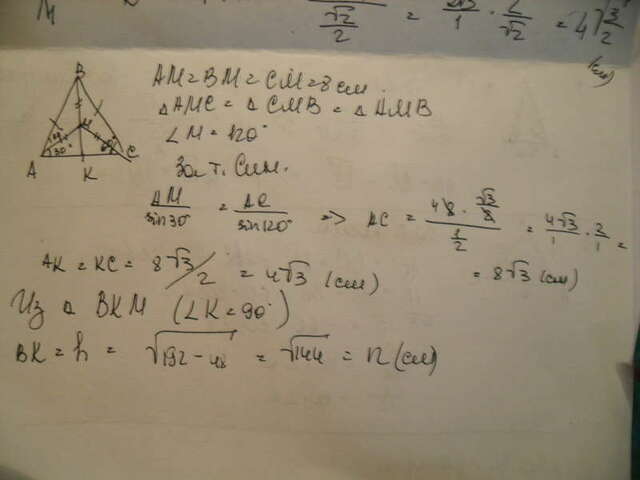 M
√2/2 = /1 · 2/√2 = 4√3/2
(см)
B
M
30°
A
K
C
AM = BM = CM = 8 см.
△AMC = △CMB = △AMB
∠M = 120°
За т. Син.
AM/sin30° = AC/sin120° => AC = (48 · √3/2)/(1/2) = 4√3/1 · 2/1 =
= 8√3 (см)
AK = KC = 8√3/2 = 4√3 (см)
Из △ BKM (∠K = 90°)
BK = h = √192 - 48 = √144 = 12 (см)